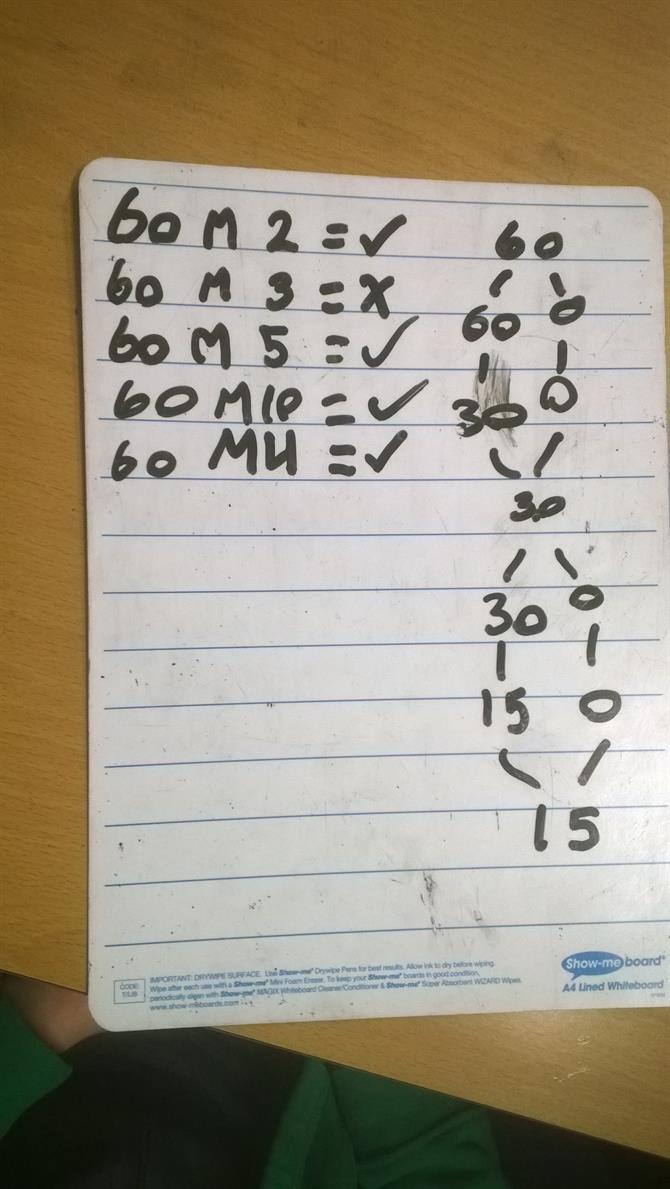 60 M 2 = ✓
60 M 3 = x
60 M 5 = ✓
60 M10 = ✓
60 M4 = ✓
60
60 0
30 0
30
30 0
15 0
15
CODE:
IMPORTANT: DRYWIPE SURFACE. Use Show-me® Drywipe Pens for best results. Allow ink to dry before wiping.
Wipe after each use with a Show-me® Mini Foam Eraser. To keep your Show-me® boards in good condition,
periodically clean with Show-me® MAGIX Whiteboard Cleaner/Conditioner & Show-me® Super Absorbent WIZARD Wipes.
www.show-meboards.com
Show-me board®
A4 Lined Whiteboard